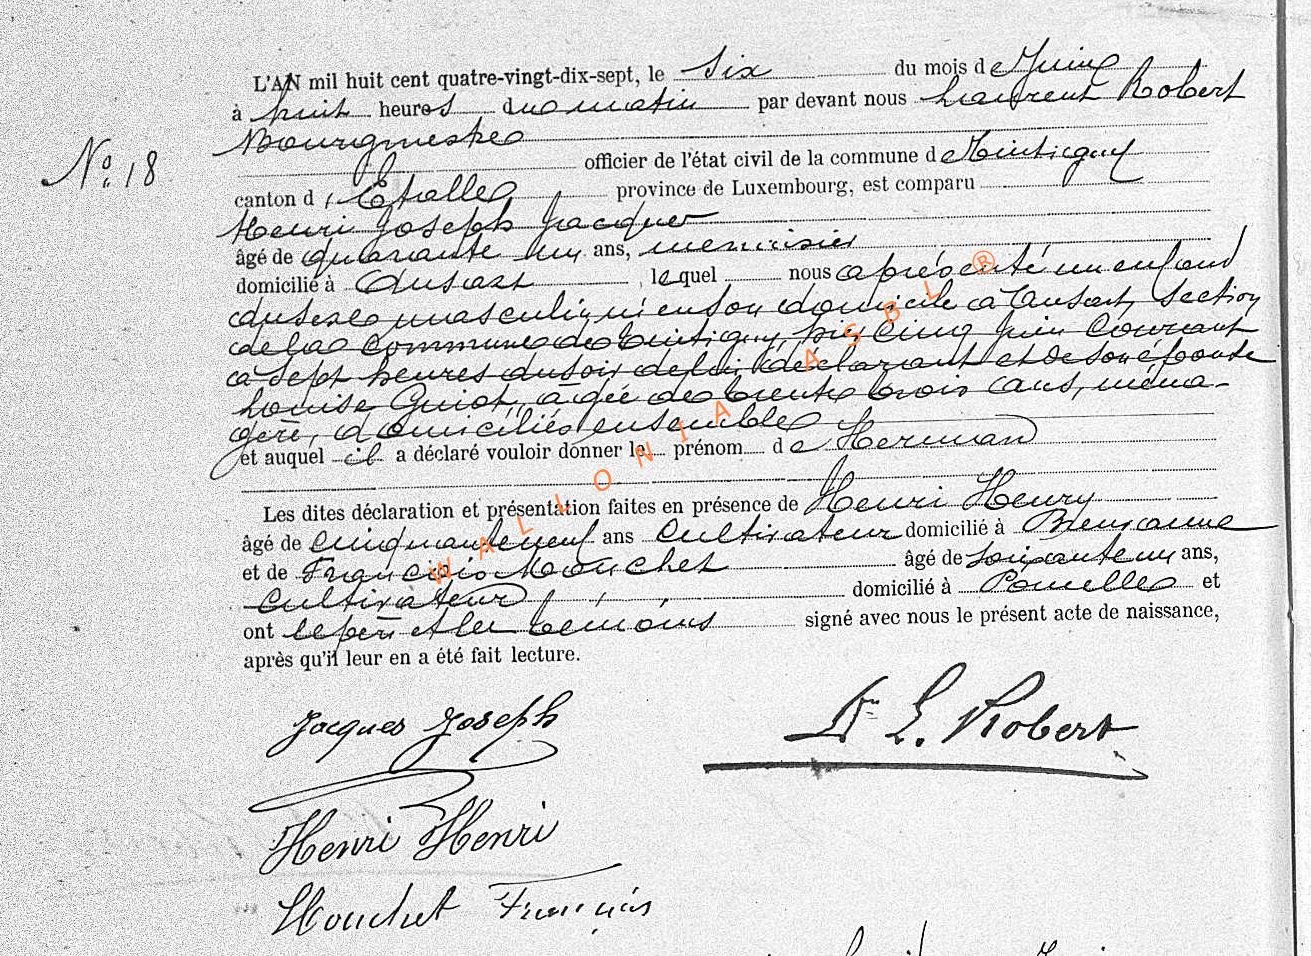 L'AN mil huit cent quatre-vingt-dix-sept, le Six du mois de Juin
à huit heures du matin par devant nous Laurent Robert
Bourgmestre
N° 18
officier de l'état civil de la commune de Tintigny
canton d'Etalle province de Luxembourg, est comparu
Henri Joseph Jacques
âgé de quarante un ans, menuisier
domicilié à Ansart lequel nous a présenté un enfant
du sexe masculin, né en son domicile à Ansart, section
de la commune de Tintigny, hier cinq Juin Courant
à sept heures du soir de lui déclarant et de son épouse
Louise Guiot, âgée de trente trois ans, ména-
gère, domiciliés ensemble
et auquel il a déclaré vouloir donner le prénom de Herman
Les dites déclaration et présentation faites en présence de Henri Henry
âgé de cinquante neuf ans Cultivateur domicilié à
et de François Mouchet âgé de soixante un ans,
Cultivateur domicilié à et
ont le père et les témoins signé avec nous le présent acte de naissance,
après qu'il leur en a été fait lecture.
Jacques Joseph
Dr L. Robert
Henri Henri
Mouchet François
WALLONIA ASBL ®